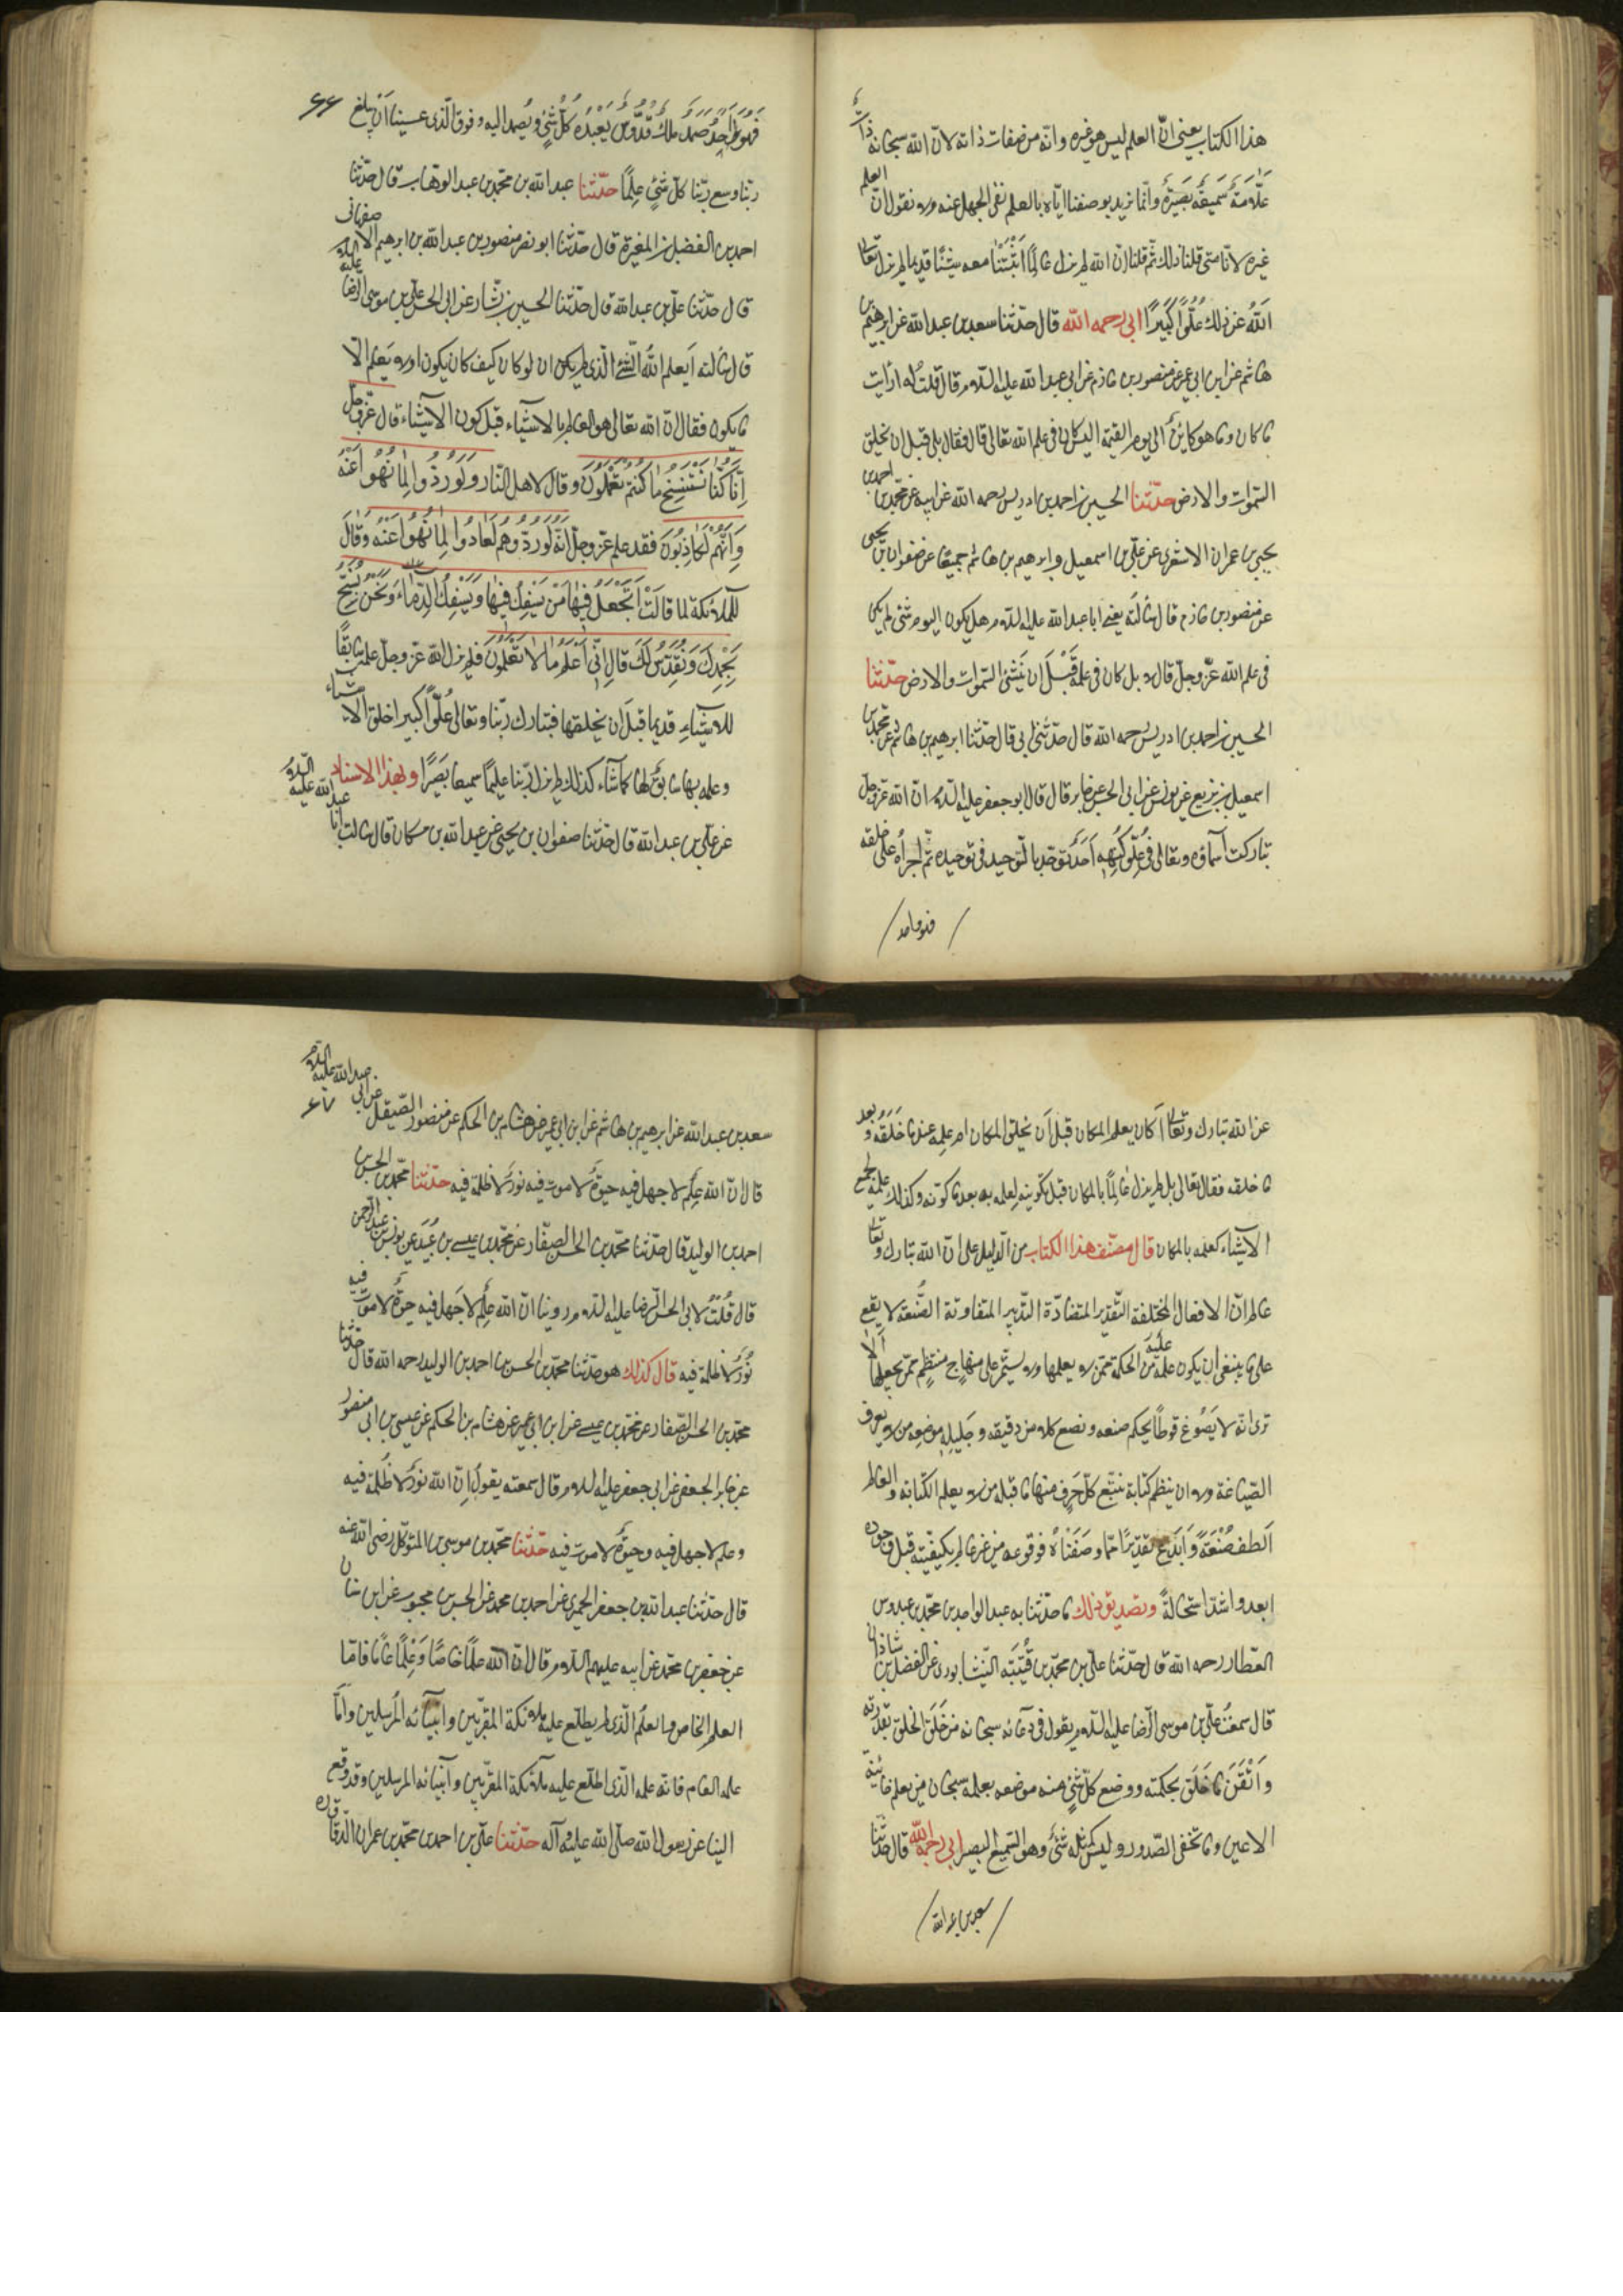 هذا الكتاب يعني انّ العلم ليس هو غيره وانّه من صفات ذاته لانّ الله سبحانه ذات
علّامة سميعة بصيرة وانّما نريد بوصفنا ايّاه بالعلم نفى الجهل عنه ولا نقول انّ العلم
غيره لانّا متى قلنا ذلك ثمّ قلنا انّ الله لم يزل عالمًا اثبتنا معه شيئًا قديما لم يزل تعالى
الله عن ذلك علُوًّا كبيرًا ابى رحمه الله قال حدّثنا سعد بن عبد الله عن ابرهيم بن
هاشم عن ابن ابي عمير عن منصور بن حازم عن ابي عبد الله عليه السلام قال قلت له ارأيت
ما كان وما هو كائن الى يوم القيمة اليس كان في علم الله تعالى قال فقال بلى قبل ان يخلق
السّموات والارض حدّثنا الحسين بن احمد بن ادريس رحمه الله عن ابيه عن محمّد بن احمد بن
يحيى بن عمران الاشعري عن علي بن اسمعيل وابرهيم بن هاشم جميعًا عن صفوان بن يحيى
عن منصور بن حازم قال سألته يعني ابا عبد الله عليه السلام هل يكون اليوم شئ لم يكن
في علم الله عزّ وجلّ قال لا بل كان في علمه قبل ان ينشئ السّموات والارض حدّثنا
الحسين بن احمد بن ادريس رحمه الله قال حدّثنا ابي قال حدّثنا ابرهيم بن هاشم عن محمّد بن
اسمعيل بن بزيع عن يونس عن ابي الحسن عن جابر قال قال ابو جعفر عليه السلام انّ الله عزّ وجلّ
تباركت اسماؤه وتعالى في علوّ كنهه احد توحّد بالتّوحيد في توحيده ثمّ اجراه على خلقه
فهو واحد
۶۶
فهو واحد صمد ملك قدّوس يعبده كلّ شئ ويصمد اليه وفوق الّذى عسينا ان نبلغ
ربّنا وسع ربّنا كلّ شئ علمًا حدّثنا عبد الله بن محمّد بن عبد الوهاب قال حدّثنا
احمد بن الفضل بن المغيرة قال حدّثنا ابو نصر منصور بن عبد الله بن ابرهيم الاصفهانى
قال حدّثنا علي بن عبد الله قال حدّثنا الحسين بن بشار عن ابي الحسن علي بن موسى الرضا عليه السلام
قال سألته ايعلم الله الشّئ الّذي لم يكن ان لو كان كيف كان يكون او لا يعلم الّا
ما يكون فقال انّ الله تعالى هو العالم بالاشياء قبل كون الاشياء قال عزّ وجلّ
انّا كنّا نستنسخ ما كنتم تعملون وقال لاهل النّار ولو ردّوا لعادوا لما نهوا عنه
وانّهم لكاذبون فقد علم عزّ وجلّ انّه لو ردّوهم لعادوا لما نهوا عنه وقال
للملائكة لما قالت اتجعل فيها من يفسد فيها ويسفك الدّماء ونحن نسبّح
بحمدك ونقدّس لك قال انّي اعلم ما لا تعلمون فلم يزل الله عزّ وجلّ علمه سابقًا
للاشياء قديما قبل ان يخلقها فتبارك ربّنا وتعالى علوًّا كبيرا خلق الاشياء
وعلمه بها سابق لها كما شاء كذلك لم يزل ربّنا عليمًا سميعا بصيرًا وبهذا الاسناد
عن علي بن عبد الله قال حدّثنا صفوان بن يحيى عن عبد الله بن مسكان قال سالت ابا عبد الله عليه السلام
عن الله تبارك وتعالى اكان يعلم المكان قبل ان يخلق المكان ام علمه عند ما خلقه وبعد
ما خلقه فقال تعالى بل لم يزل عالمًا بالمكان قبل تكوينه لعلمه به بعد ما كوّنه وكذلك علمه بجميع
الاشياء كعلمه بالمكان قال مصنّف هذا الكتاب من الدّليل على انّ الله تبارك وتعالى
عالم انّ الافعال المختلفة التّقدير المتضادّة التّدبير المتفاوتة الصّنعة لا يقع
على ما ينبغي ان يكون عليه من الحكمة ممّن لا يعلمها ولا يستمرّ على منهاج منتظم ممّن يجهلها الا
ترى انّه لا يصوغ قرطًا يحكم صنعه ويضع كلا من دقيقه وجليله موضعه من لا يعرف
الصّياغة ولا ان ينظم كتابة يتبع كلّ حرف منها ما قبله من لا يعلم الكتابة والعالم
الطف صنعة وابدع تقديرًا ممّا وصفناه فوقوعه من غير عالم بكيفيّته قبل وجوده
ابعد واشدّ استحالة وتصديق ذلك ما حدّثنا به عبد الواحد بن محمّد بن عبدوس
العطّار رحمه الله قال حدّثنا علي بن محمّد بن قتيبة النّيشابورى عن الفضل بن شاذان
قال سمعت علي بن موسى الرّضا عليه السلام يقول في دعائه سبحانه من خلق الخلق بقدرته
واتقن ما خلق بحكمته ووضع كلّ شئ منه موضعه بعلمه سبحان من يعلم خائنة
الاعين وما تخفى الصّدور وليس كمثله شئ وهو السّميع البصير ابي رحمه الله قال حدّثنا
سعد بن عبد الله
۶۷
سعد بن عبد الله عن ابرهيم بن هاشم عن ابن ابي عمير عن هشام بن الحكم عن منصور الصّيقل عن ابي عبد الله عليه السلام
قال انّ الله علم لا جهل فيه حيوة لا موت فيه نور لا ظلمة فيه حدّثنا محمّد بن الحسن بن
احمد بن الوليد قال حدّثنا محمّد بن الحسن الصفّار عن محمّد بن عيسى بن عبيد عن يونس بن عبد الرحمن
قال قلت لابي الحسن الرّضا عليه السلام روينا انّ الله علم لا جهل فيه حيوة لا موت فيه
نور لا ظلمة فيه قال كذلك هو حدّثنا محمّد بن الحسن بن احمد بن الوليد رحمه الله قال حدّثنا
محمّد بن الحسن الصّفار عن محمّد بن عيسى عن ابن ابي عمير عن هشام بن الحكم عن عيسى بن ابي منصور
عن جابر الجعفي عن ابي جعفر عليه السلام قال سمعته يقول انّ الله نور لا ظلمة فيه
وعلم لا جهل فيه وحيوة لا موت فيه حدّثنا محمّد بن موسى بن المتوكّل رضي الله عنه
قال حدّثنا عبد الله بن جعفر الحميري عن احمد بن محمد عن الحسن بن محبوب عن ابن سنان
عن جعفر بن محمّد عن ابيه عليهم السلام قال انّ لله علمًا خاصًّا وعلمًا عامًّا فامّا
العلم الخاص فالعلم الّذي لم يطلع عليه ملائكة المقرّبين وانبيائه المرسلين وامّا
علمه العام فانّه علمه الّذي اطلع عليه ملائكة المقرّبين وانبيائه المرسلين وقد وقع
الينا عن رسول الله صلّى الله عليه وآله حدّثنا علي بن احمد بن محمّد بن عمران الدّقاق